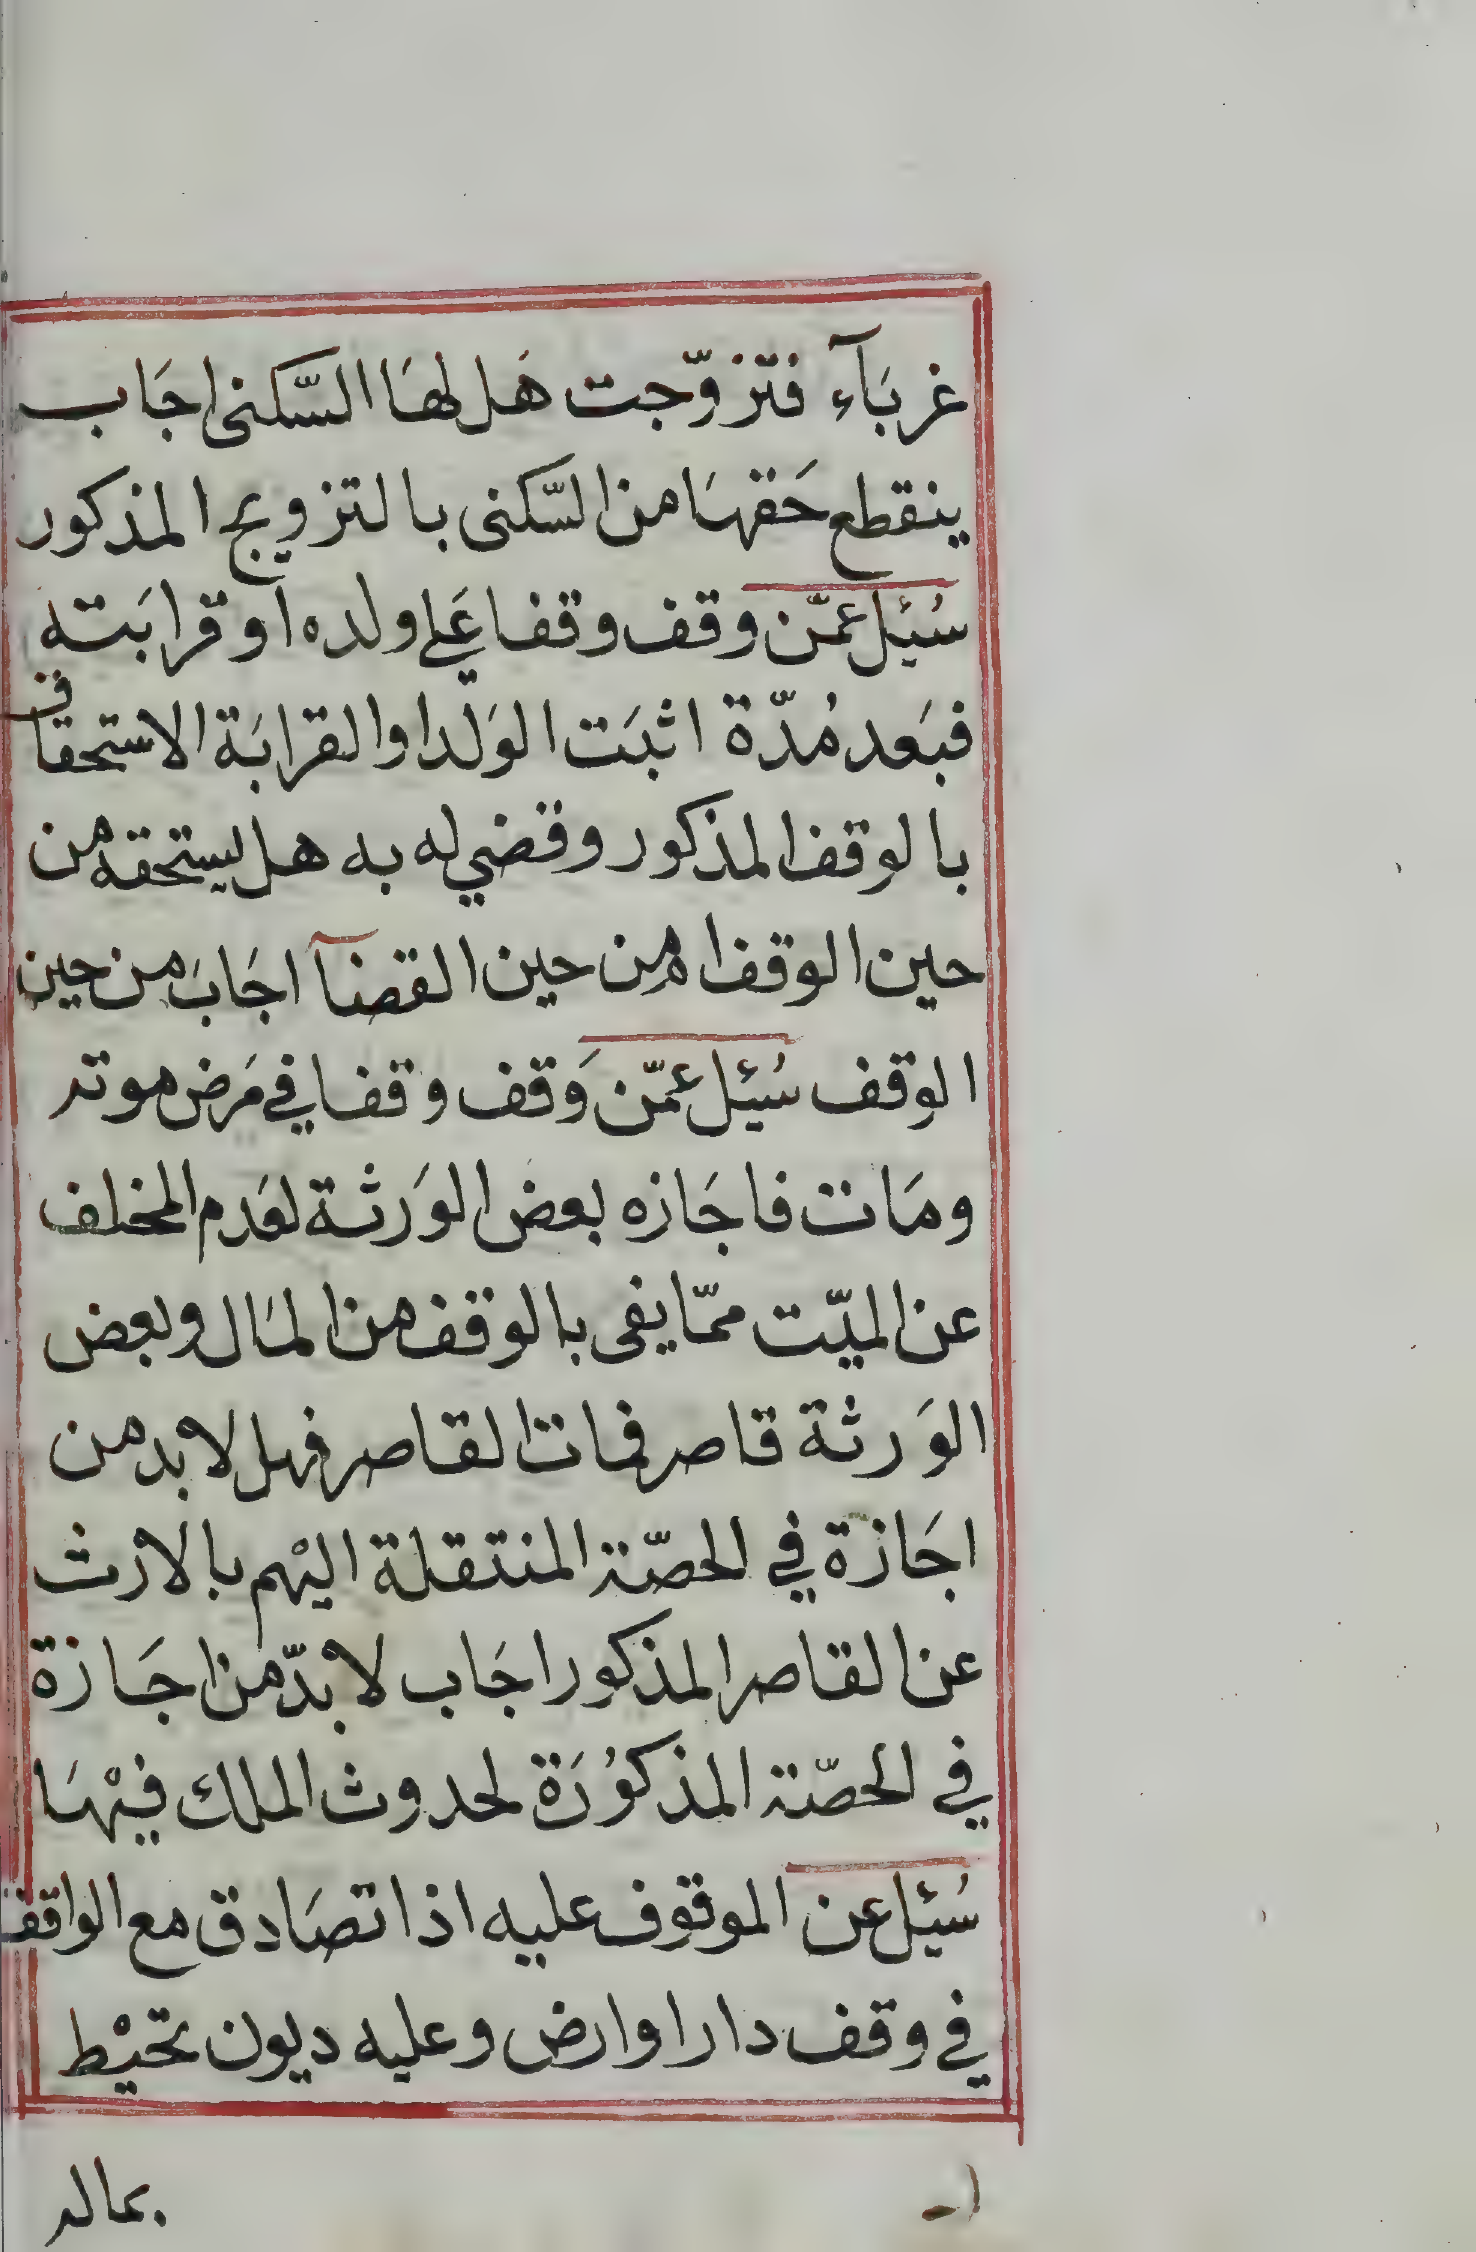 غربَآء فتزوّجت هَل لهَا السَّكنى اجَاب
ينقطع حَقهَا من السَّكنى بالتزويج المذكور
سُئِل عمّن وقف وقفا عَلى ولده او قرابَته
فبَعد مُدّة اثبَت الوَلد او القرابَة الاستحقاق
بالوقف المذكور وقضي له به هل يستحقه من
حين الوقف ام من حين القضآ اجَابَ من حين
الوقف سُئِل عمّن وَقف وقفا في مَرض موته
ومَات فاجَازه بعض الوَرثة لعَدم المخلف
عن الميّت ممّا يفى بالوقف من المَال وبعض
الوَرثة قاصر فمات القاصر فهل لا بد من
اجَازة في الحصّة المنتقلة اليْهم بالارث
عن القاصر المذكور اجَاب لا بدّ من اجَازة
في الحصّة المذكوُرَة لحدوث الملك فيْهَا
سُئِل عن الموقوف عليه اذا تصَادق مع الواقف
في وقف دار او ارض وعليه ديون تحيْط
بماله